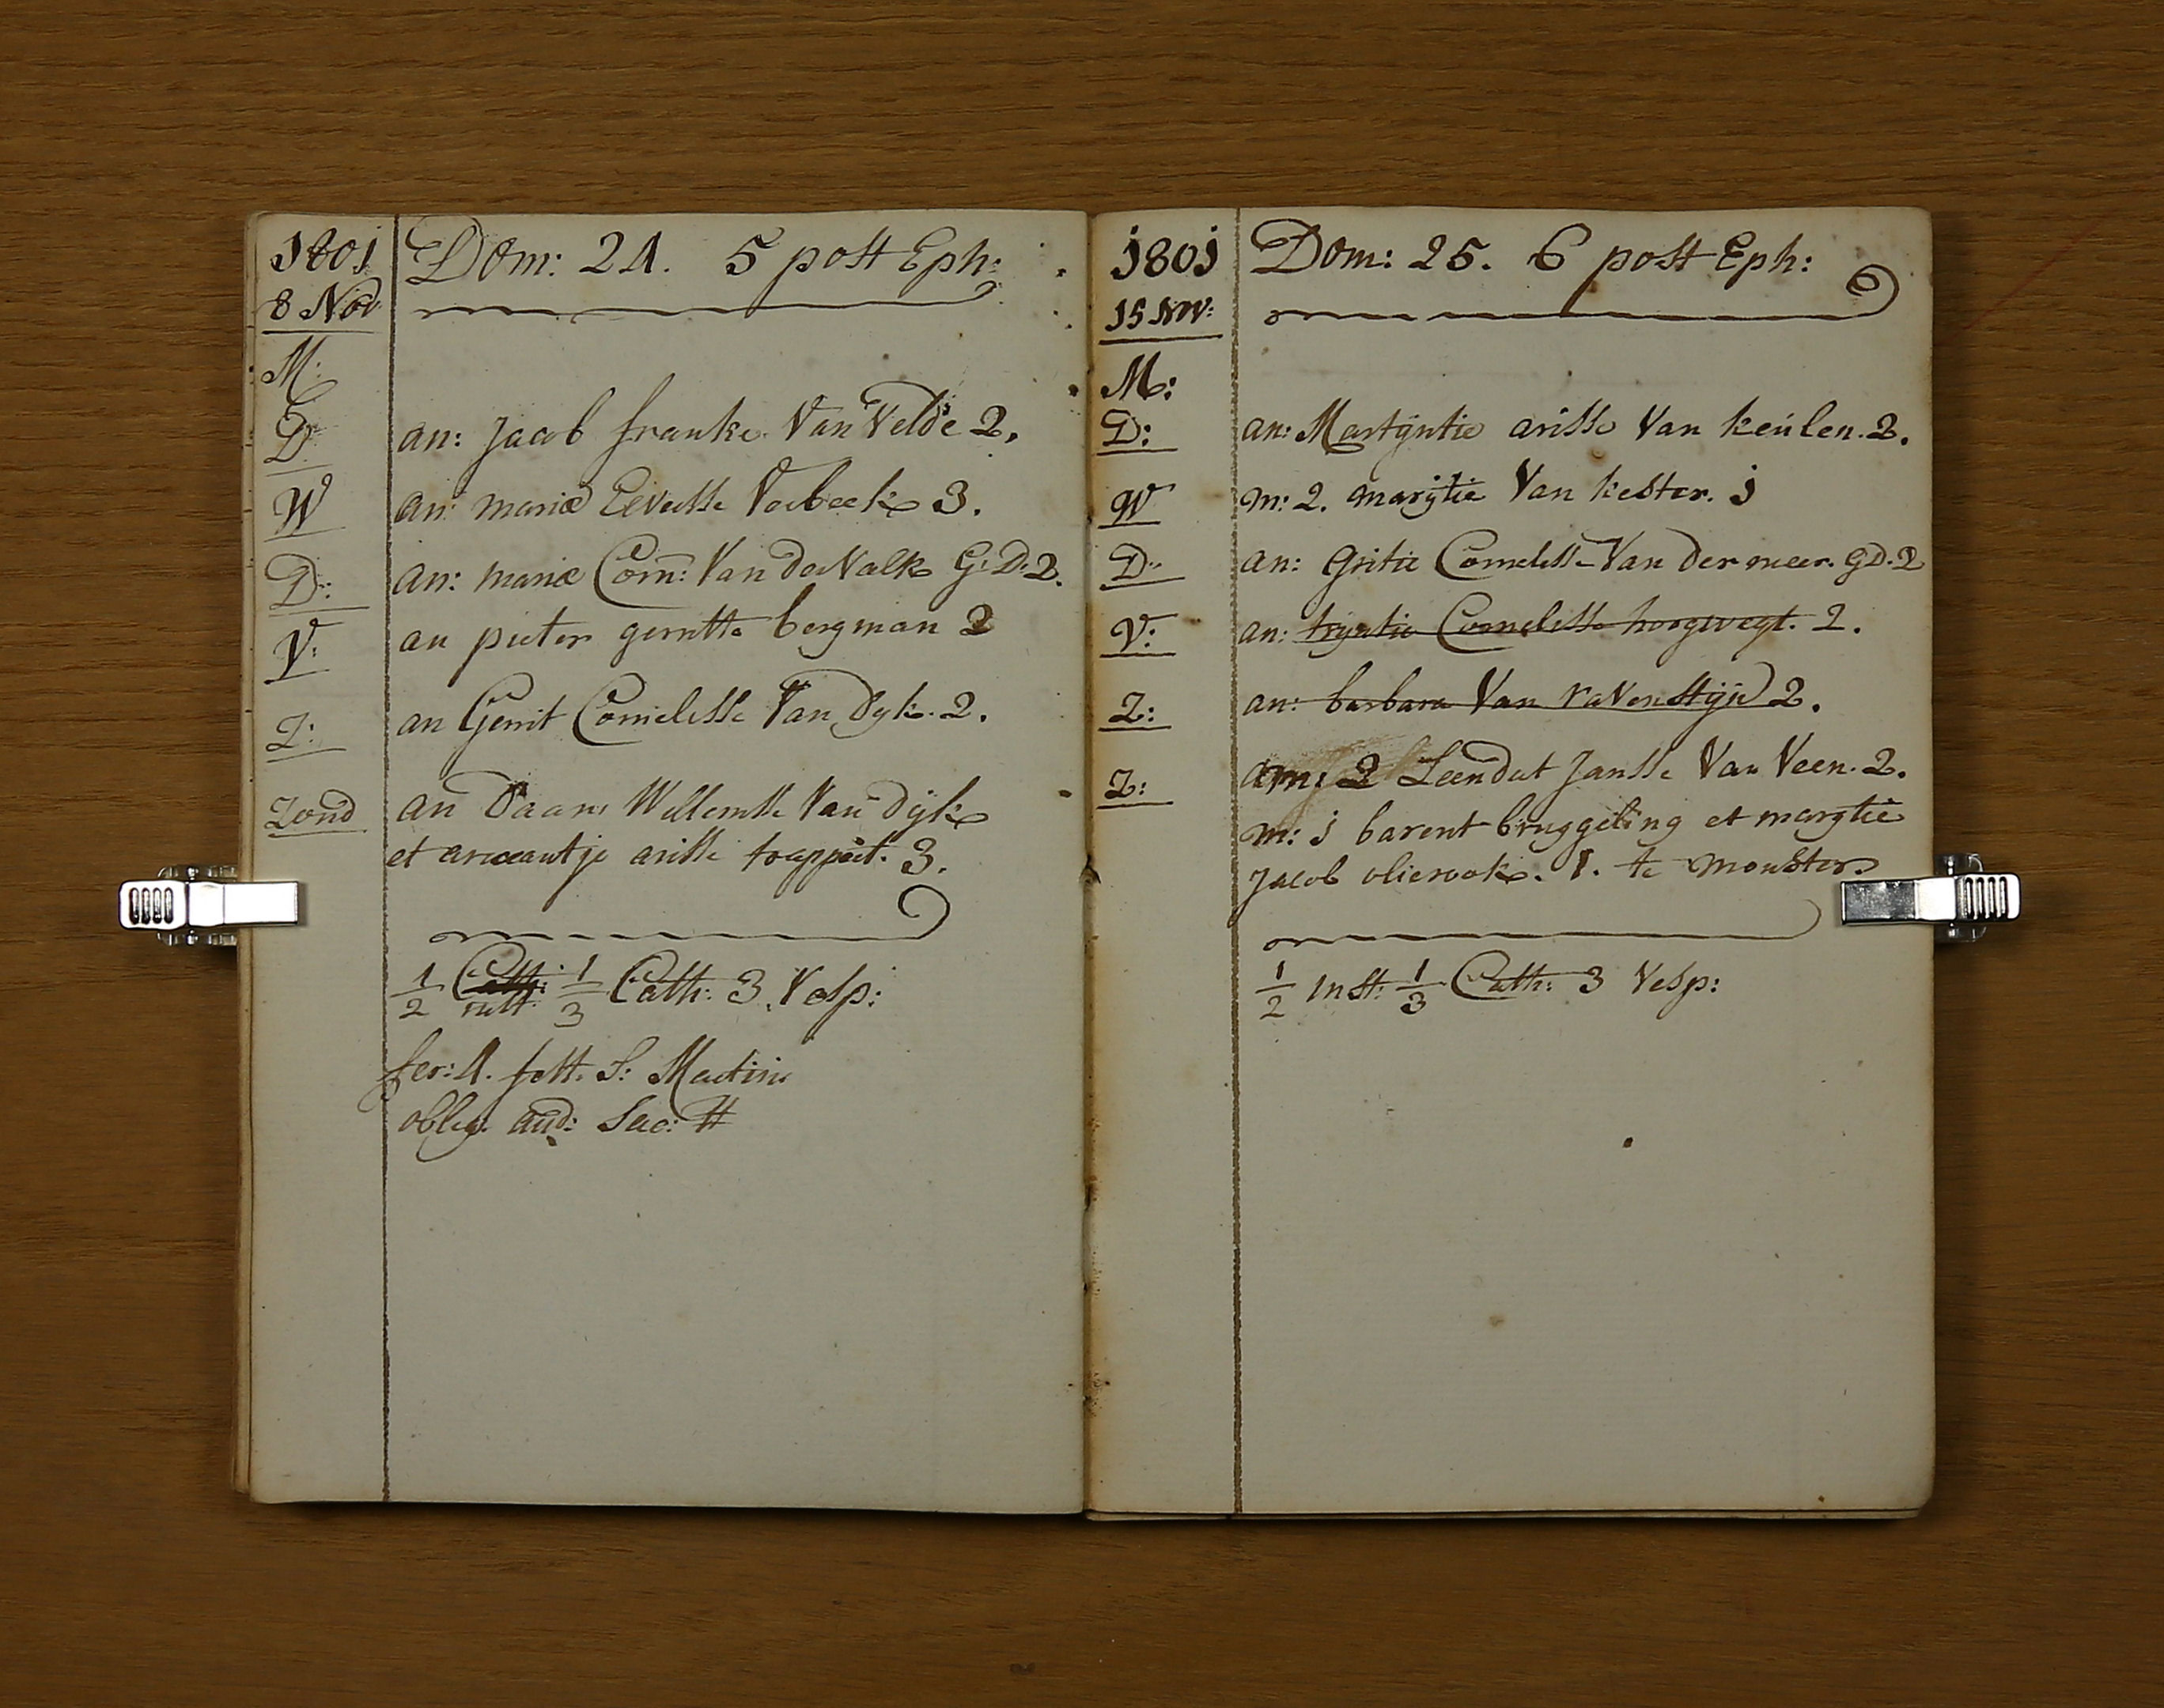 1801
8 Nov
Dom: 24. 5 post Eph:
M:
D an: Jacob franke Van Velde 2.
W an: mariæ Everisse Verbeek 3.
D: an: mariæ Corn: Van der Valk G: D. 2.
V: an pieter gerritse bergman 2
Z: an Gerrit Cornelisse Van Dyk. 2.
Zond an Daam Willemsse Van dijk
et arisse 3.
1/2 Cath: 1/3 Cath: 3 Vesp:
fer: 4. fest. S: Martini
oblig. aud: Sac: #
1801
15 Nov:
Dom: 25. 6 post Eph:
M:
D: an: Martijntie arisse Van keúlen. 2.
W m: 2. marijtie Van kester. j
D: an: Gritie Cornelisse Van der meer. GD. 2
V: an: tryntie Cornelisse hoogwegt. 2.
Z: an: barbara Van ravenstijn 2.
Z: an: 2 Leendert Jansse Van Veen. 2.
m: j barent bruggeling et marytie
Jacob 1. te monster
1/2 Inst: 1/3 Cath: 3 Vesp: